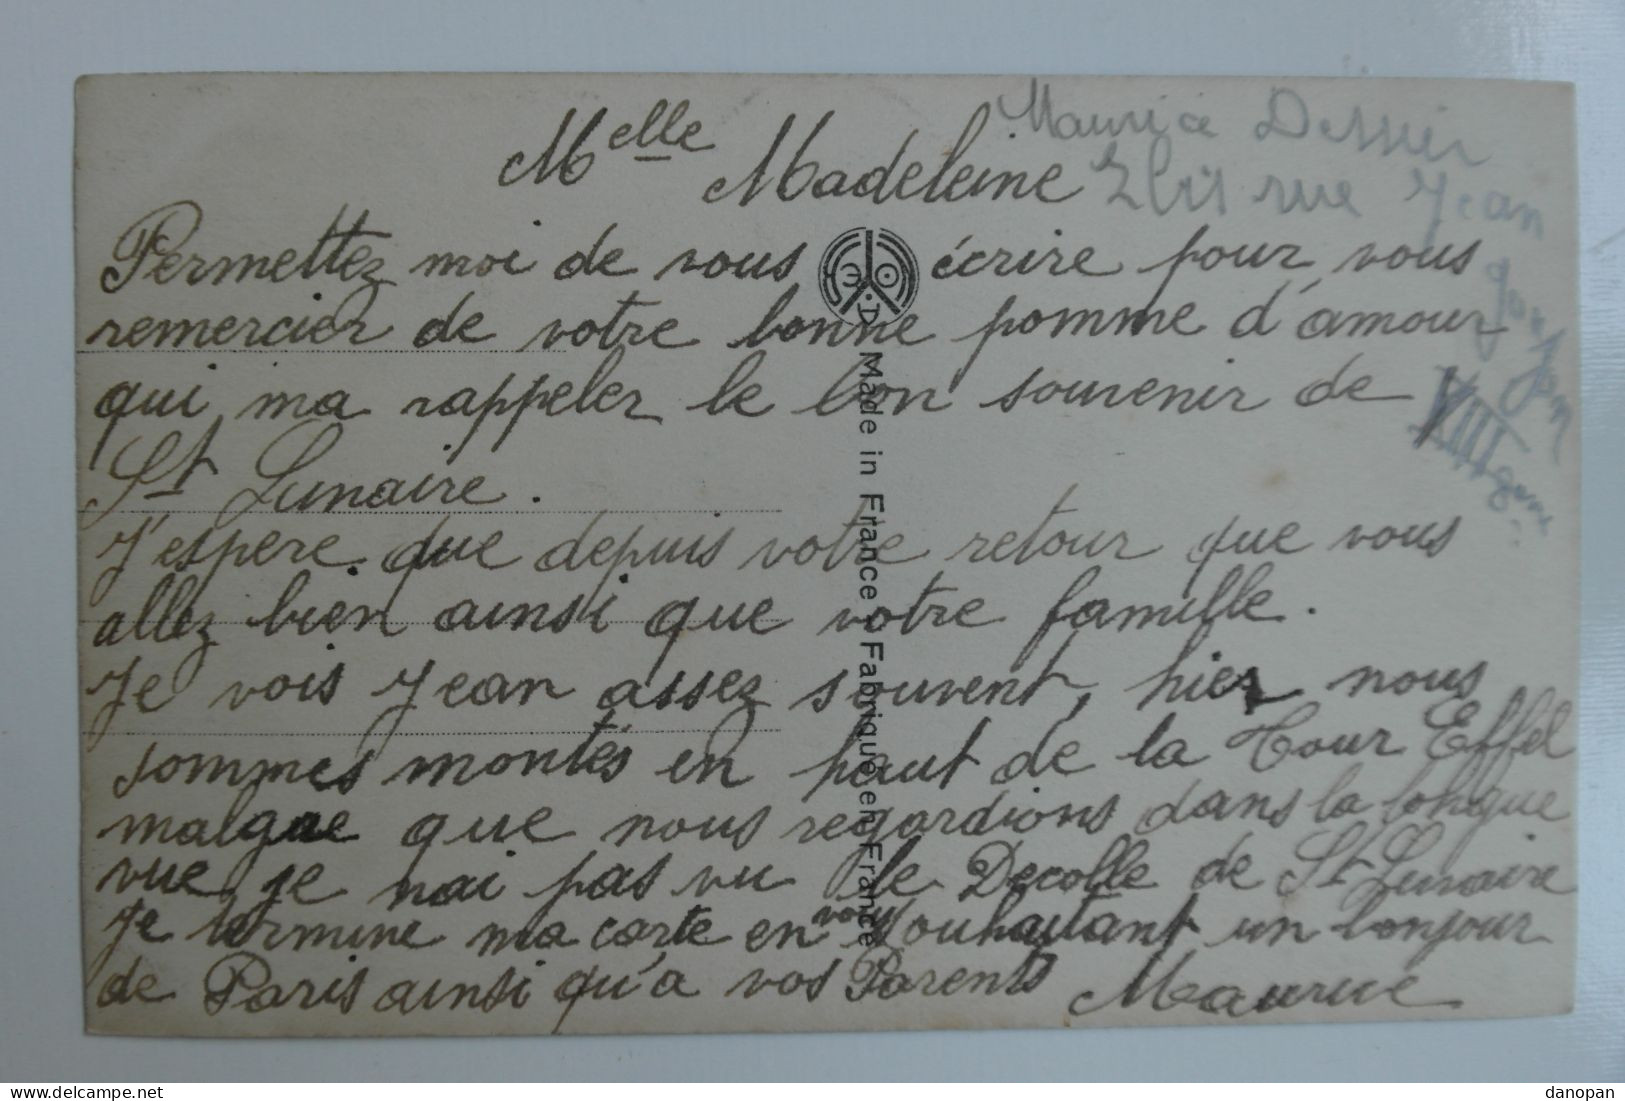 Melle Madeleine
Permettez moi de vous écrire pour vous
remercier de votre bonne pomme d'amour
qui ma rappeler le bon souvenir de
St Lunaire.
J'espere que depuis votre retour que vous
allez bien ainsi que votre famille.
Je vois Jean assez souvent, hier nous
sommes montés en haut de la Tour Effel
malgre que nous regardions dans la longue
vue je n'ai pas vu le Decolle de St Lunaire
Je termine ma carte en vous souhaitant un bonjour
de Paris ainsi qu'a vos Parents Maurice
Maurice
bis rue Jean
Goujon
Made in France - Fabriqué en France
danopan
https://www.delcampe.net